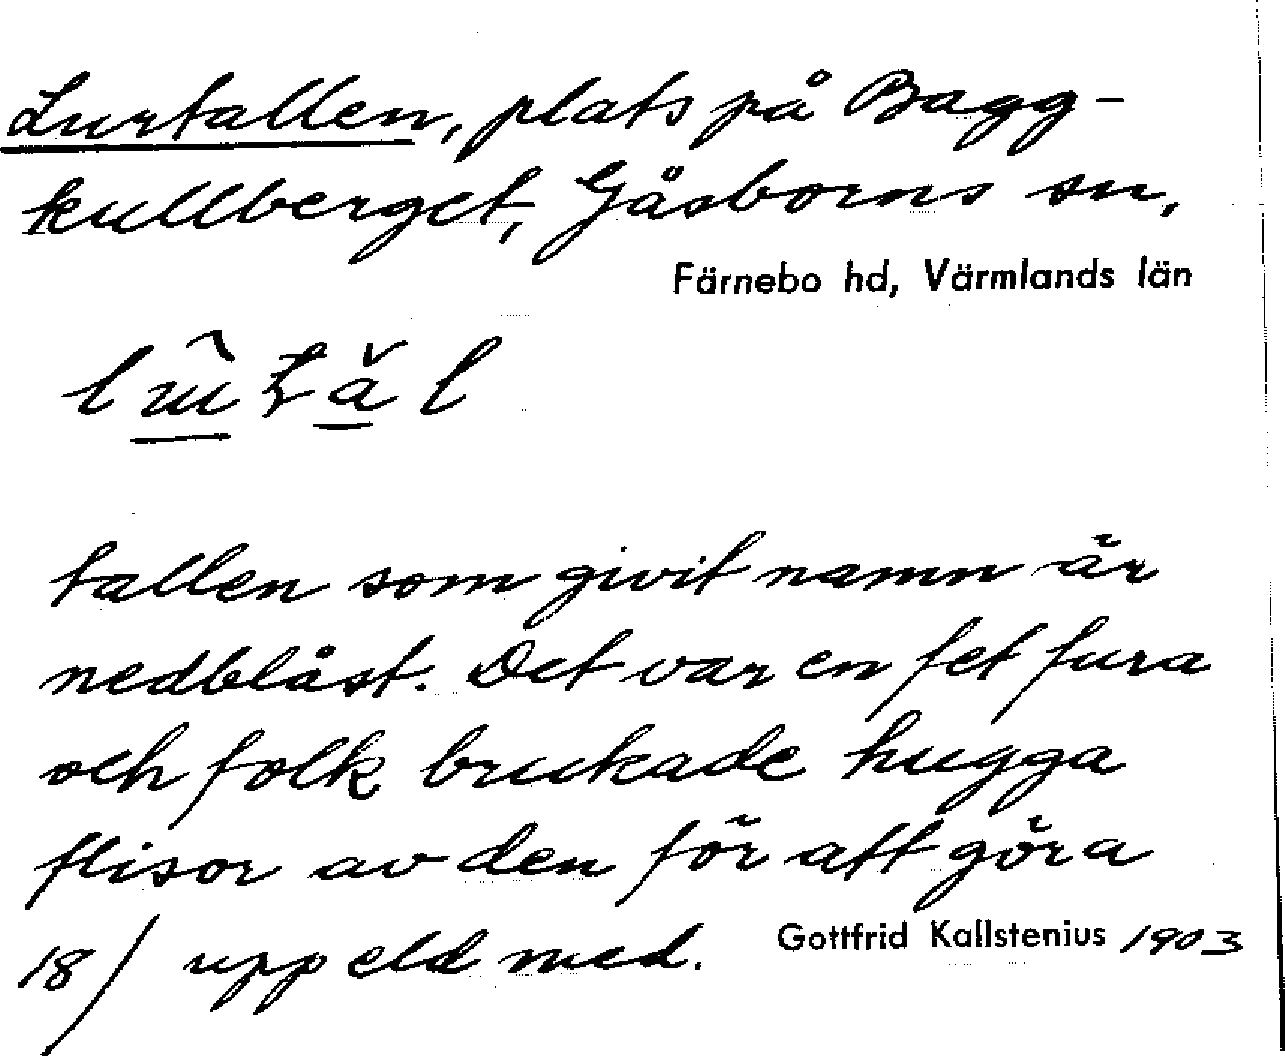 Lurtallen, plats på Bagg-
kullberget, Gåsborns sn,
Färnebo hd, Värmlands län
tallen som givit namn är
nedblåst. Det var en fet fura
och folk brukade hugga
flisor av den för att göra
18/ upp eld med. Gottfrid Kallstenius 1903